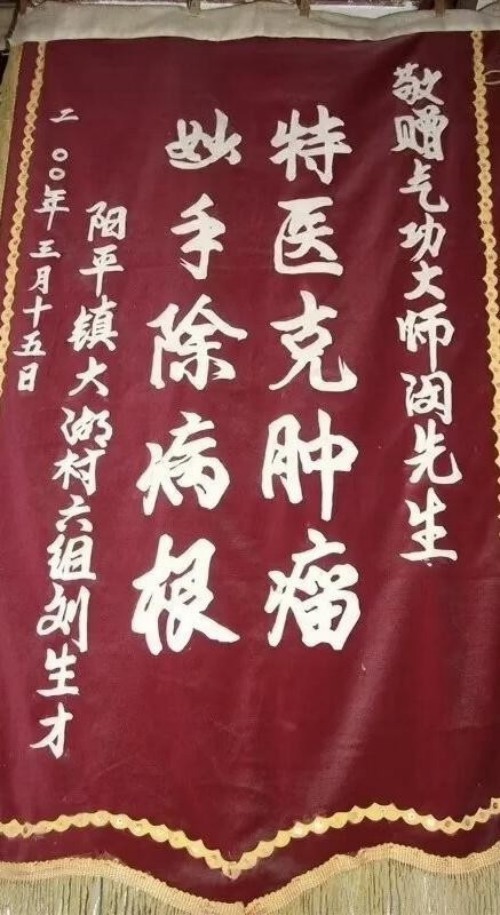 敬赠气功大师闵先生
特医克肿瘤
妙手除病根
阳平镇大湖村六组刘生才
二〇〇年三月十五日